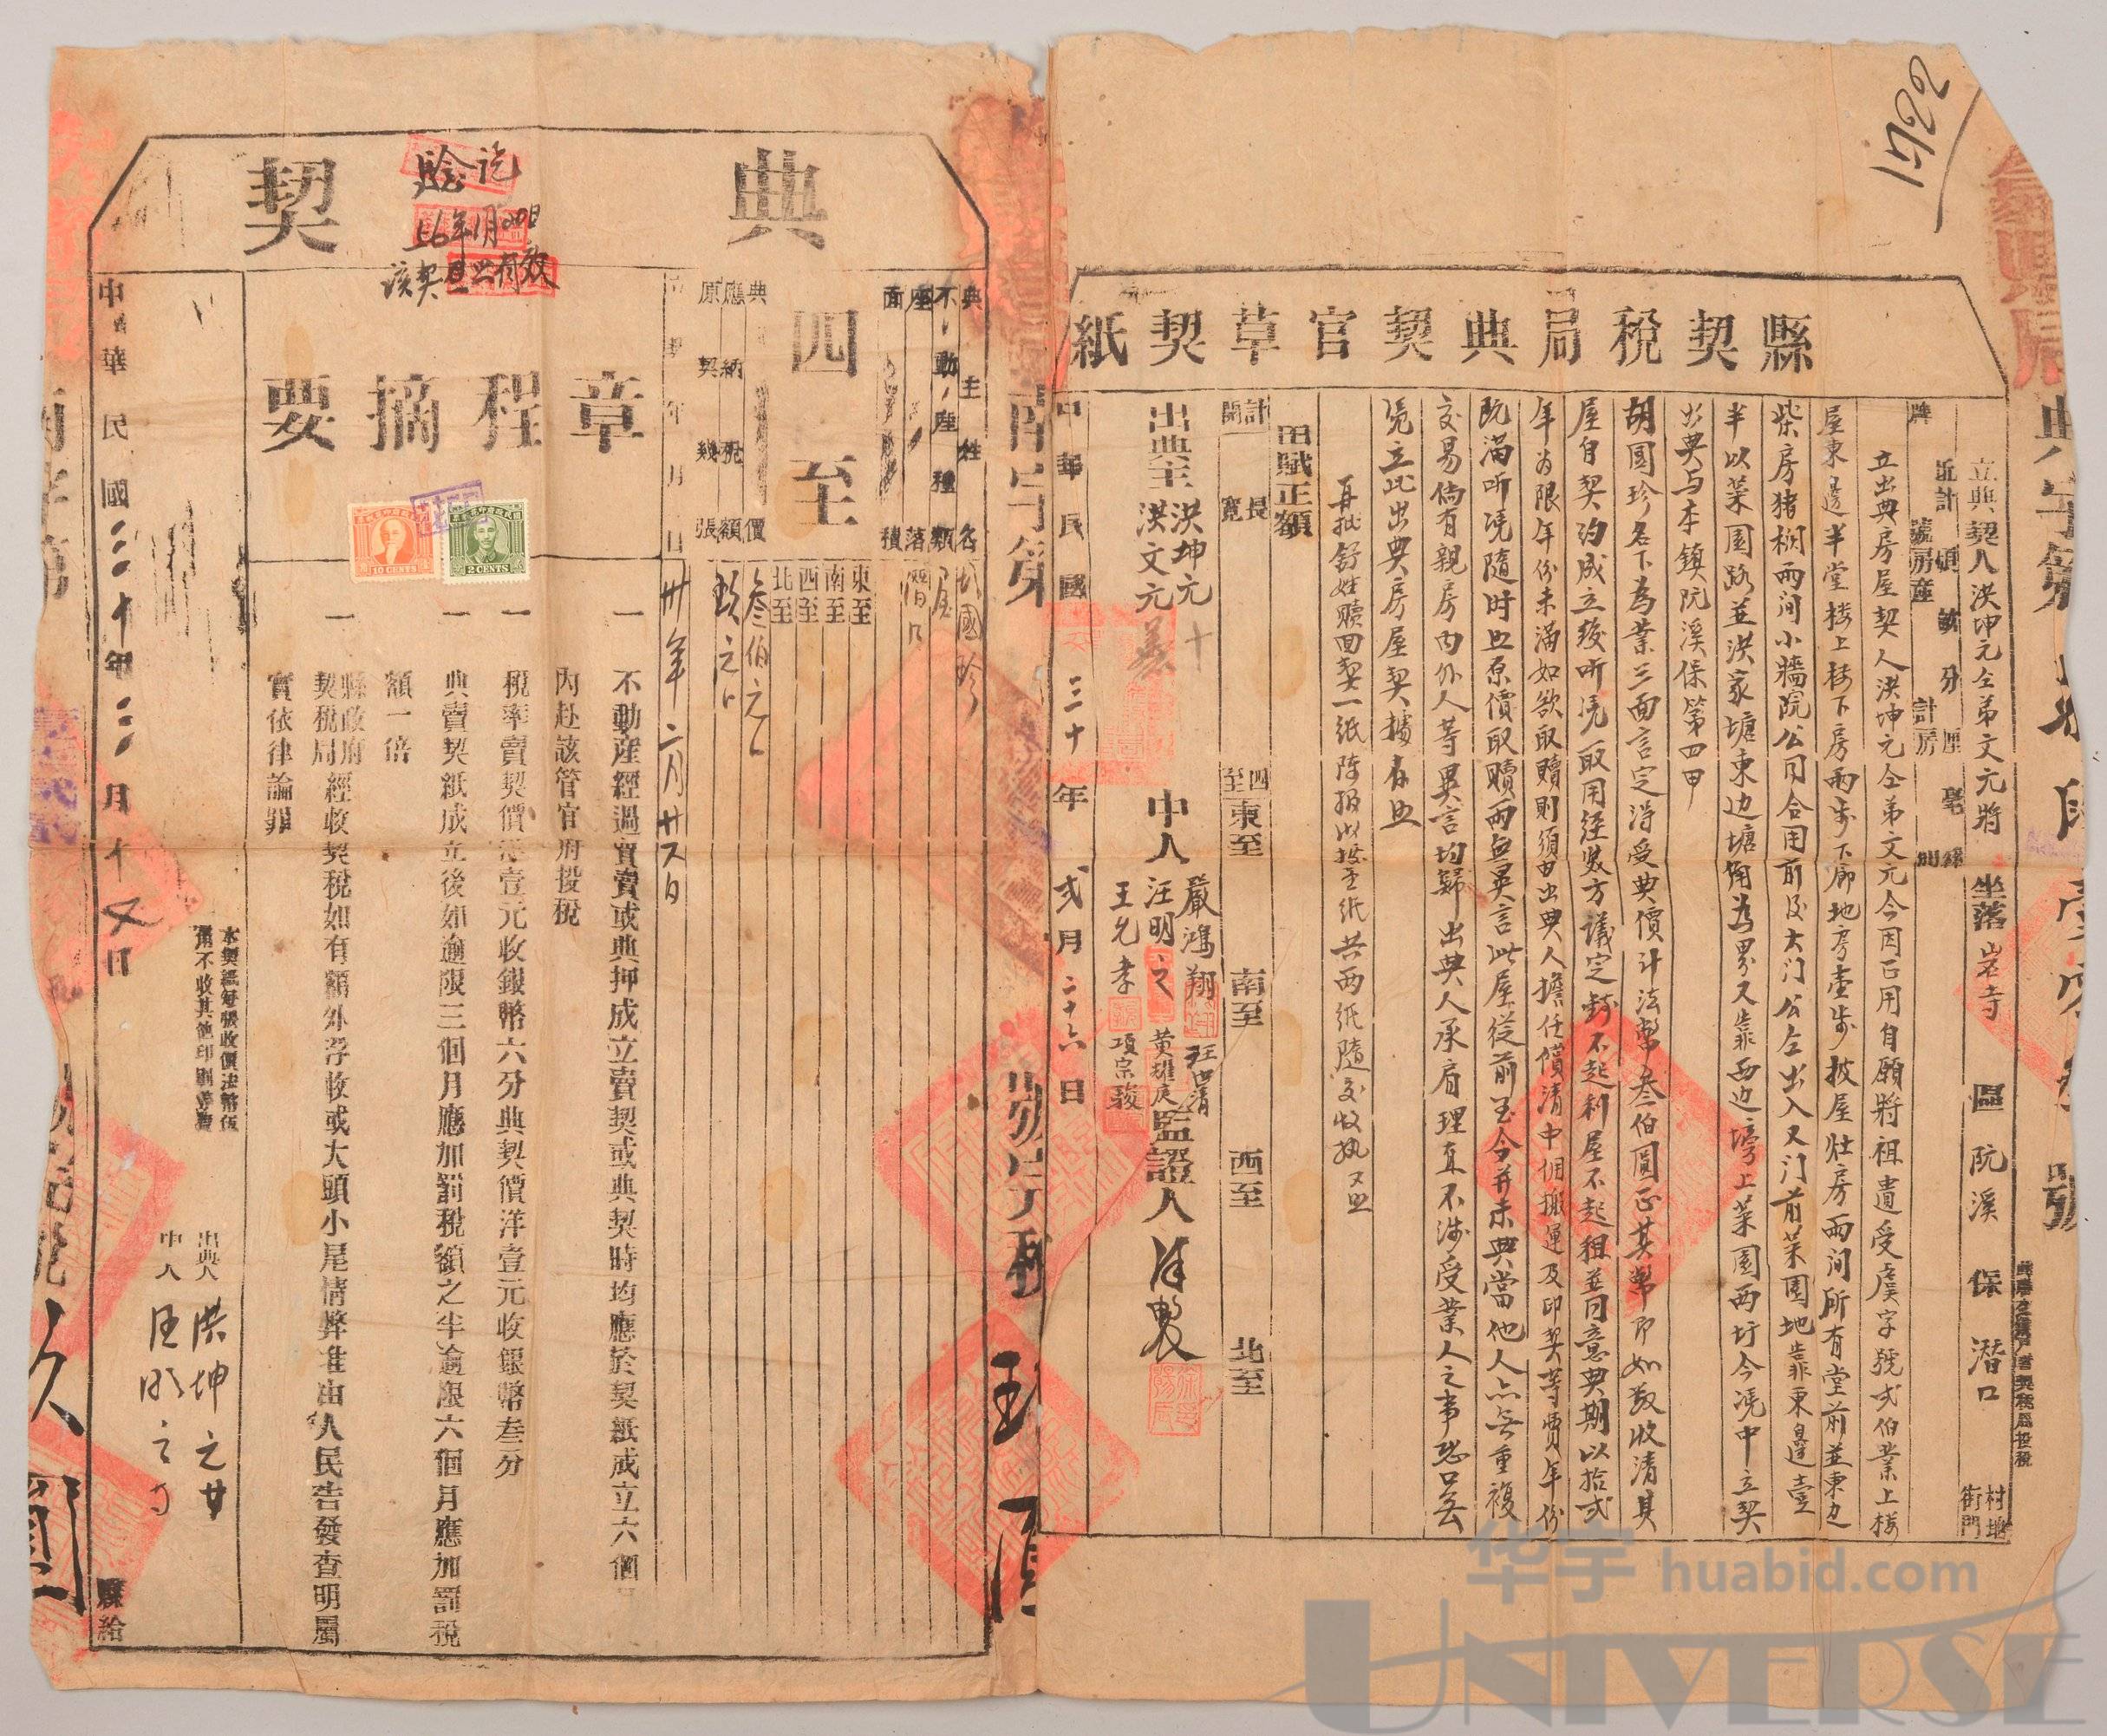 1522
縣契稅局典契官草契紙
立典契人洪坤元仝弟文元將 坐落岩寺區阮溪保潛口 村坦 街門
立出典房屋契人洪坤元仝弟文元今因正用自願將祖遺受虞字號弍伯業上樓
屋東邊半堂樓上樓下房兩步下廊地房壹步披屋灶房兩间所有堂前並東边
柴房猪欄两间小牆院公同合用前及大门公仝出入又门前菜園地靠東邊壹
半以菜園路並洪家塘東边塘角為界又靠西边塝上菜園西圩今凴中立契
出典与本鎮阮溪保第四甲
胡國珍名下為業三面言定淂受典價计法幣叁伯圓正其幣即如数收清其
屋自契约成立後听凴取用经雙方議定錢不起利屋不起租並同意典期以拾弍
年为限年份未滿如欲取贖則須由出典人擔任償清中佣搬運及印契等费年份
既滿听凴隨时且原價取贖两無異言此屋從前至今并未典當他人亦無重複
交易倘有親房内外人等異言均歸出典人承肩理直不涉受業人之事恐口無
凴立此出典房屋契據存照
再批舒姓贖回契一纸陈报收據壹纸共两纸隨交收执又照
田賦正額
計開 長 寬 四至 東至 南至 西至 北至
出典主 洪坤元 十 洪文元 義
中人 嚴鴻翔 汪明之 王允孝 黄耀庭 項宗駿
監證人
中華民國三十年弍月二十六日
典契
驗讫
56年1月20日
該契照出有效
典主姓名
不動產種類 屋
座落 潛口
面積
四至
東至
南至
西至
北至
典價 叁佰元
應納稅額 玖元
原契幾張
立契年月日 卅年二月廿六日
章程摘要
10 CENTS
2 CENTS
一 不動產經過買賣或典押成立賣契或典契時均應於契紙成立六個月
內赴該管官府投稅
一 稅率賣契價洋壹元收銀幣六分典契價洋壹元收銀幣叁分
一 典賣契紙成立後如逾限三個月應加罰稅額之半逾限六個月應加罰稅
額一倍
一 縣政府契稅局經收契稅如有額外浮收或大頭小尾情弊准由人民告發查明屬
實依律論罪
本契紙每張收價法幣伍
角不收其他印刷等費
出典人 洪坤元
中人 汪明之
中華民國三十年三月十又日 縣給
华宇 huabid.com
UNIVERSE